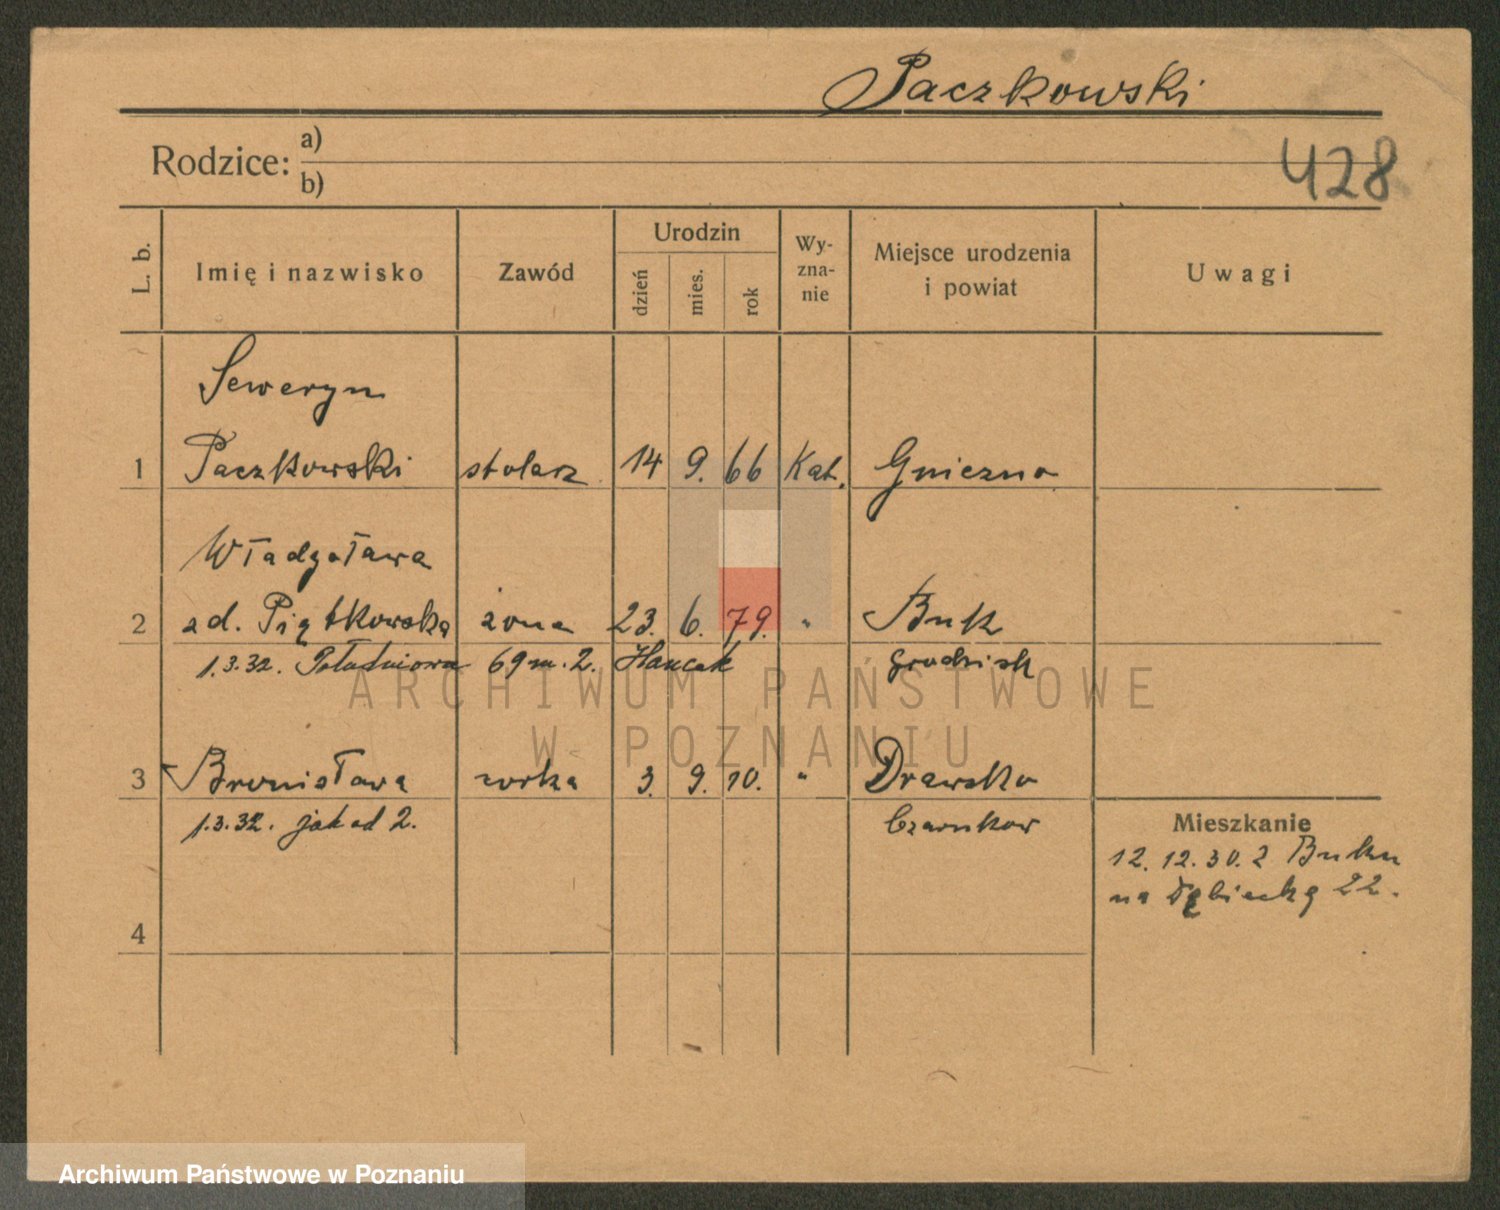 Paczkowski
Rodzice: a)
b)
428
L. b.
Imię i nazwisko
Zawód
Urodzin
dzień
mies.
rok
Wy-
zna-
nie
Miejsce urodzenia
i powiat
Uwagi
Seweryn
1 Paczkowski stolarz 14 9. 66 Kat. Gniezno
2 ad. Piątkowska żona 23. 6. 79. " Buk
1.3.32. Południowa 69 m. 2. Grodzisk
ARCHIWUM PAŃSTWOWE
W POZNANIU
3 Bronisława corka 3. 9. 10. " Drawsko
1.3.32. jak ad 2. Czarnkow
Mieszkanie
12. 12. 30. z Buku
na 22.
4
Archiwum Państwowe w Poznaniu